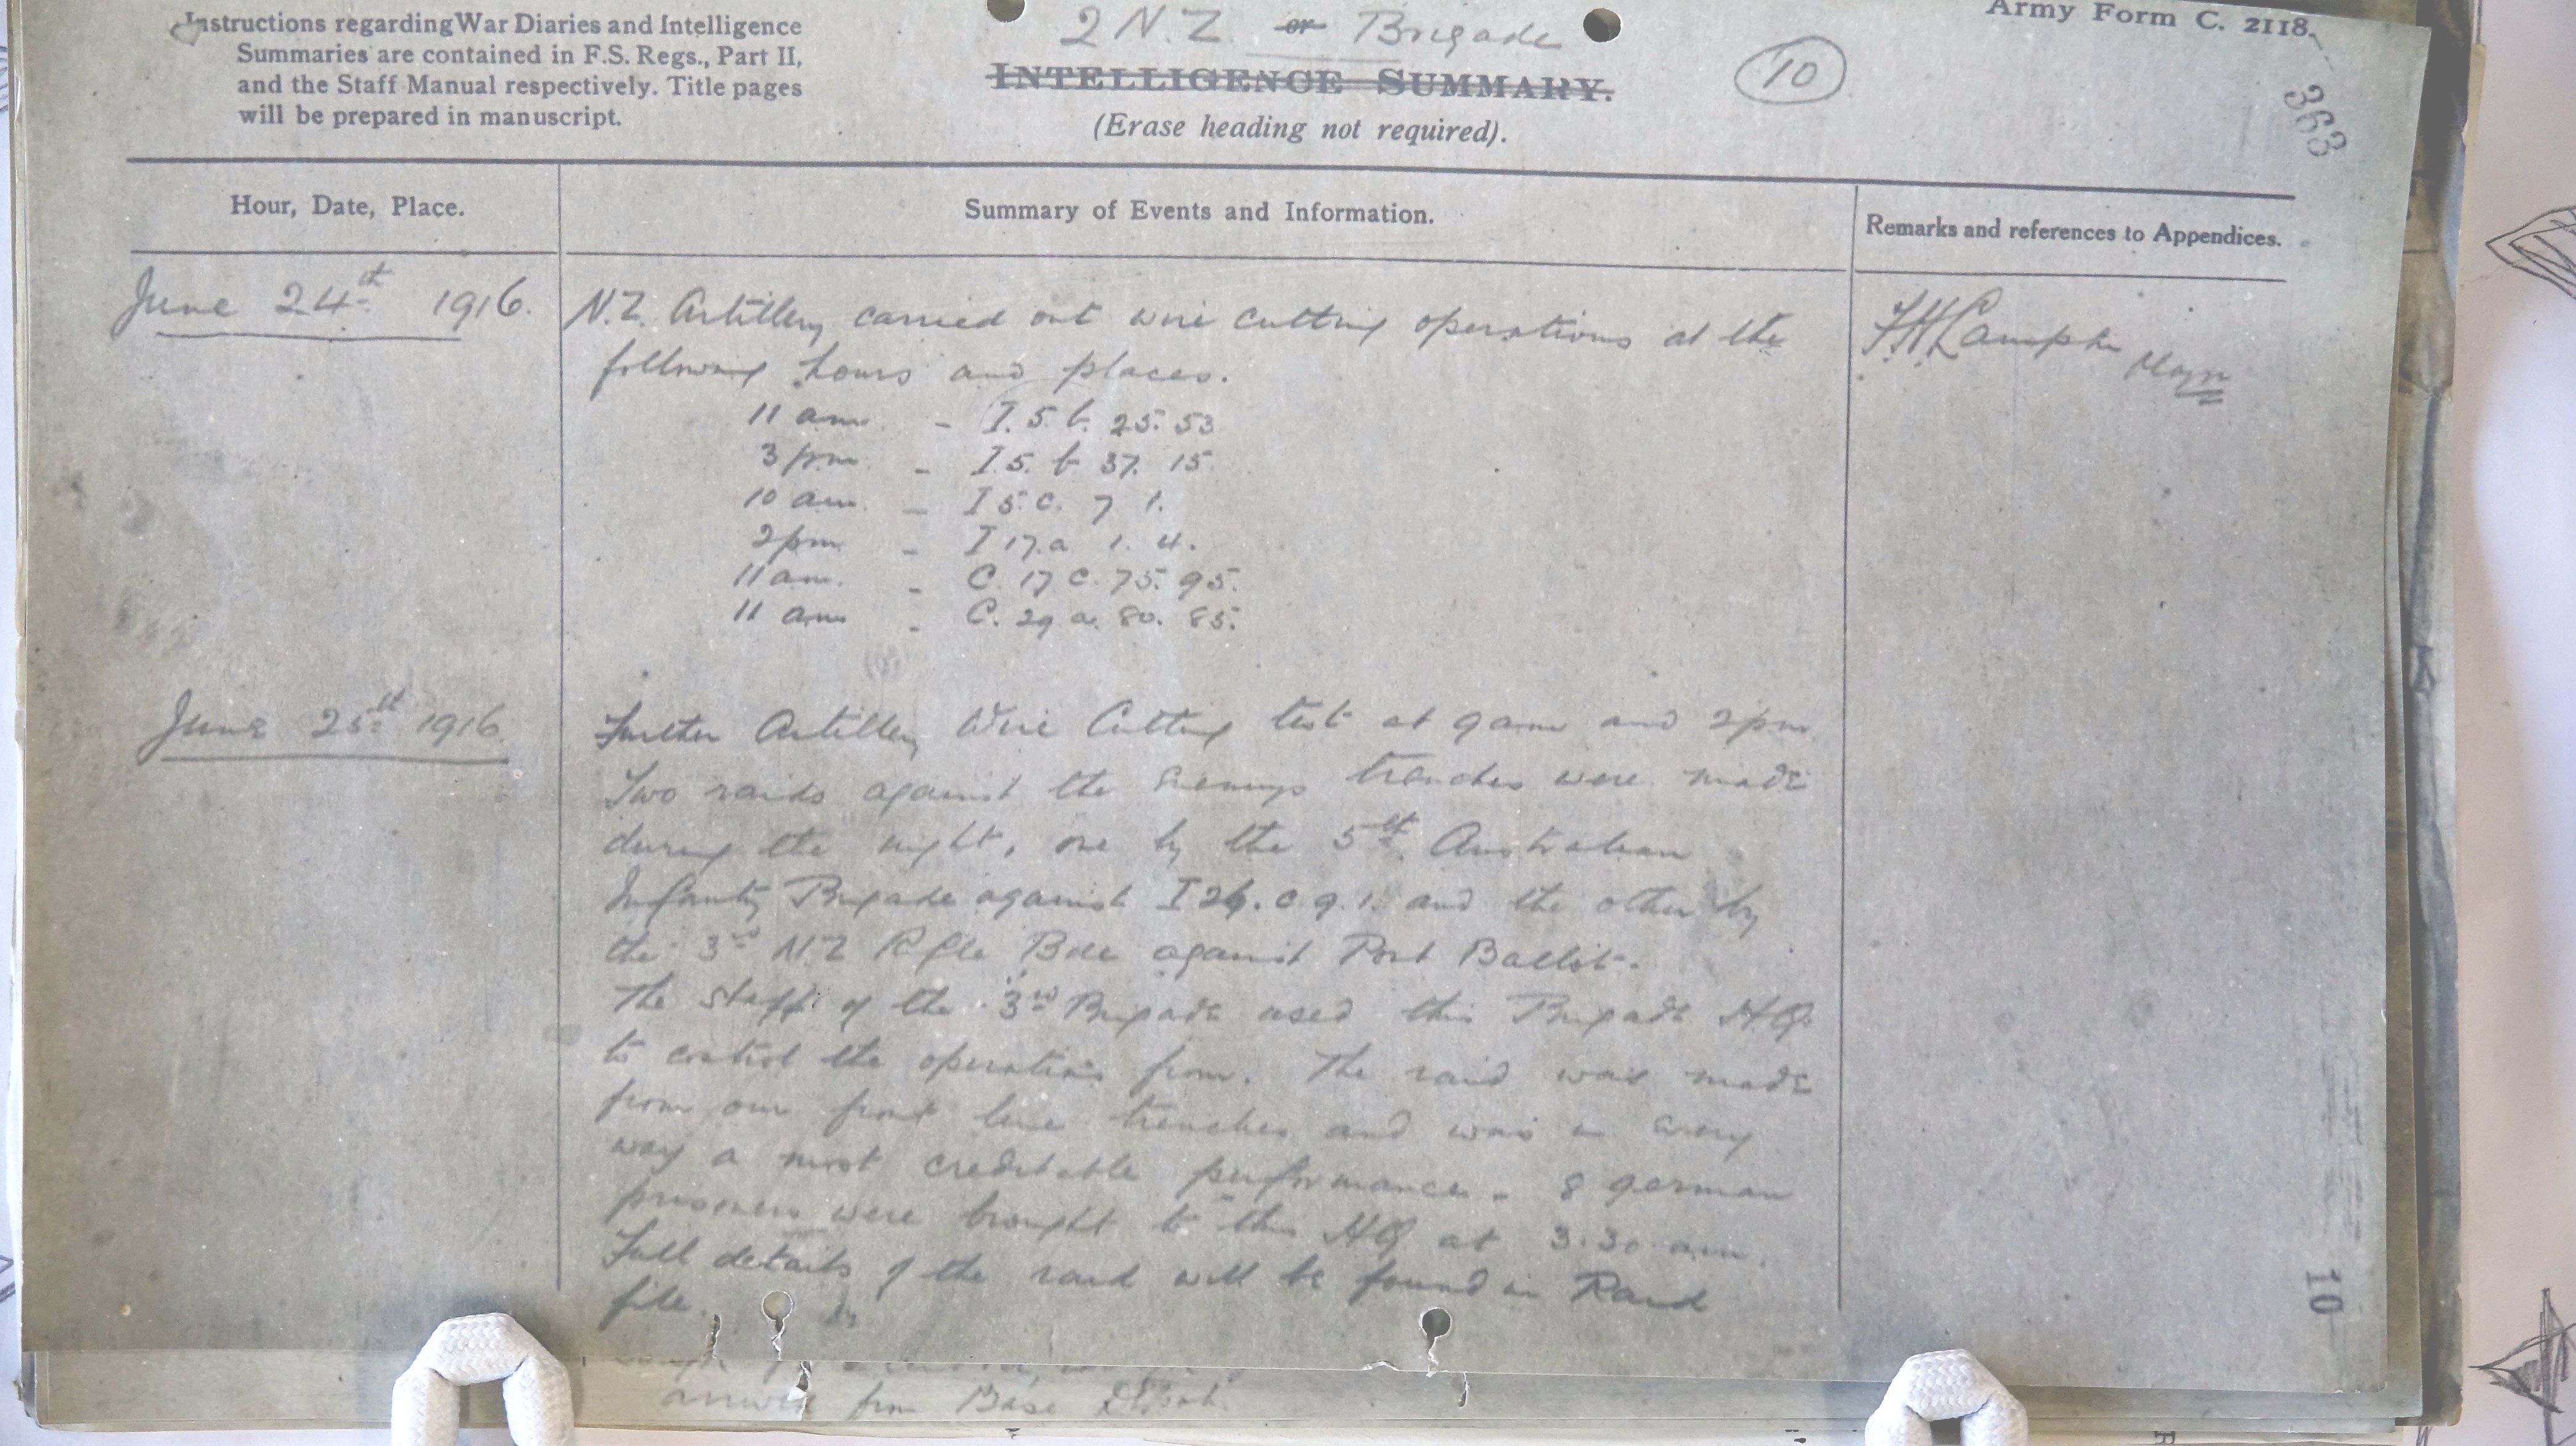 Instructions regarding War Diaries and Intelligence
Summaries are contained in F.S. Regs., Part II,
and the Staff Manual respectively. Title pages
will be prepared in manuscript.
2 N.Z. or Brigade
INTELLIGENCE SUMMARY.
(Erase heading not required).
10
Army Form C. 2118.
363
Hour, Date, Place.
Summary of Events and Information.
Remarks and references to Appendices.
June 24th 1916.
N.Z. Artillery carried out wire cutting operations at the
following hours and places.
11 am. - I.5.b. 25.53
3 pm. - I.5.b 37.15
10 am. - I 5.c. 7 1.
2pm - I 17.a 1.4.
11 am. - C.17 c.75.95.
11 am - C.29 a.80.85.
June 25th 1916.
Further Artillery Wire Cutting test at 9am and 2pm
Two raids against the Enemys trenches were made
during the night, one by the 5th Australian
Infantry Brigade against I 26.c.9.1. and the other by
the 3rd N.Z Rifle Bde against Post Ballot.
The staff of the 3rd Brigade used this Brigade HQ
to control the operations from. The raid was made
from our front line trenches and was in every
way a most creditable performance - 8 german
prisoners were brought to this HQ at 3.30 am.
Full details of the raid will be found in Raid
file.
10
from Base